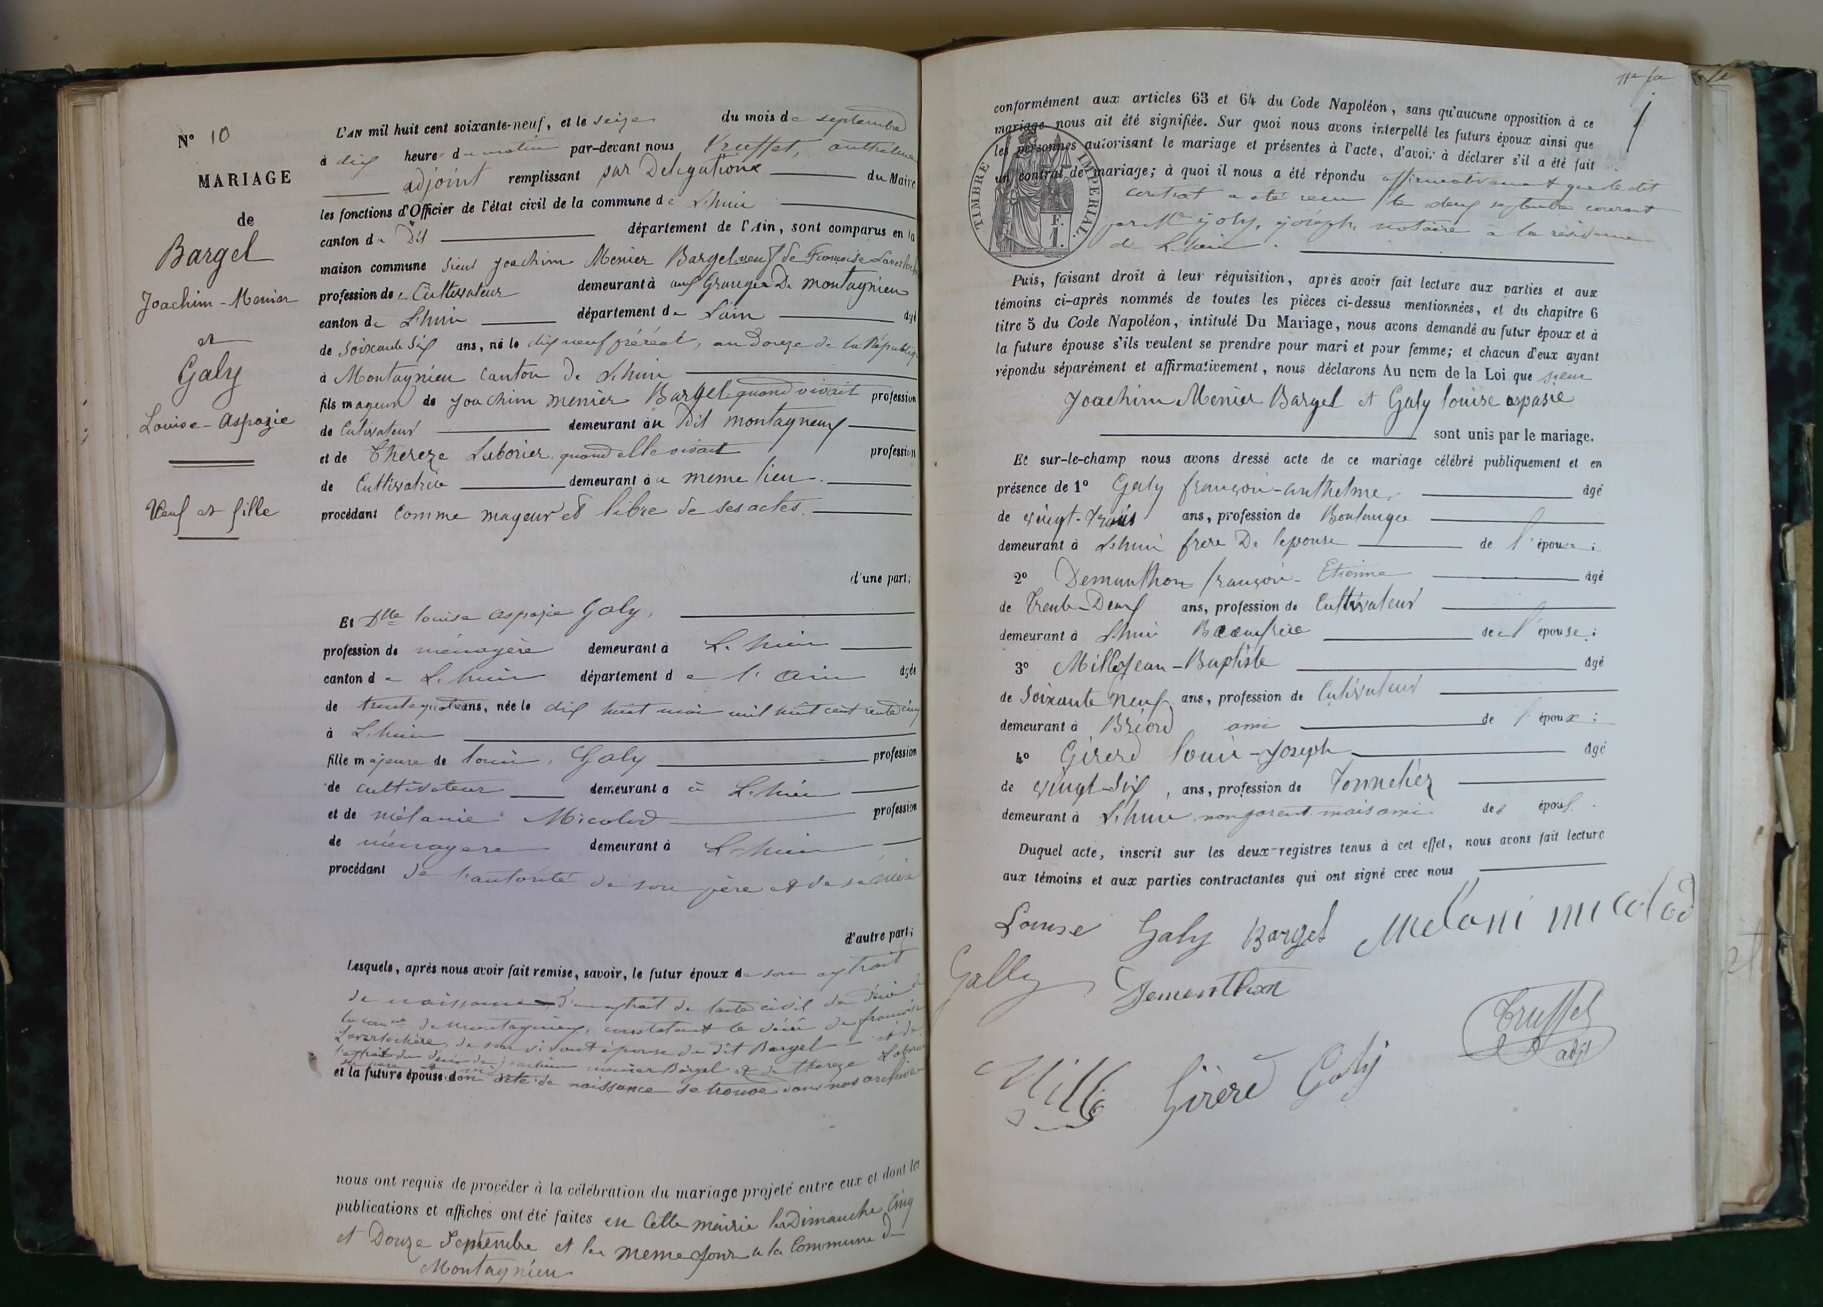 N° 10
MARIAGE
de
Bargel
Joachim-Menier
et
Galy
Louise-Aspazie
Veuf et fille
L'AN mil huit cent soixante-neuf, et le seize du mois de septembre
à dix heures du matin par-devant nous Truffet, anthelme
adjoint remplissant par Délégation du Maire
les fonctions d'Officier de l'état civil de la commune de Lhuis
canton de dit département de l'Ain, sont comparus en la
maison commune sieur Joachim Menier Bargel veuf de Françoise
profession de Cultivateur demeurant à aux Granges De Montagnieu
canton de Lhuis département de L'ain âgé
de soixante six ans, né le dix neuf préréal, an douze de la République
à Montagnieu canton de Lhuis
fils majeur de Joachim menier Bargel quand vivait profession
de Cutivateur demeurant au dit montagneux
et de Thereze Laborier quand elle vivait profession
de Cultivatrice demeurant au meme lieu.
procédant comme mageur et libre de ses actes.
d'une part;
Et Dlle louise aspazie Galy,
profession de ménagère demeurant à Lhuis
canton de Lhuis département de l'ain âgée
de trente quatre ans, née le dix huit mai mil huit cent trente cinq
à Lhuis
fille majeure de louis Galy profession
de cultivateur demeurant à à Lhuis
et de mélanie Micolod profession
de ménagere demeurant à Lhuis
procédant de l'autorité de son père et de sa mère
d'autre part;
Lesquels, après nous avoir fait remise, savoir, le futur époux de son extrait
de naissance d'un extrait de l'acte civil de décès de
la comne de Montagnieu, constatant le décès de françoise
de son vivant épouse du dit Bargel et de
l'extrait du décès de joachim menier Bargel et de thereze Laborier
et la future épouse dont acte de naissance se trouve dans nos archives
nous ont requis de procéder à la célébration du mariage projeté entre eux et dont les
publications et affiches ont été faites en Cette mairie les Dimanche Cinq
et Douze Septembre et les meme jour a la Commune de
Montagnieu
conformément aux articles 63 et 64 du Code Napoléon, sans qu'aucune opposition à ce
mariage nous ait été signifiée. Sur quoi nous avons interpellé les futurs époux ainsi que
les personnes autorisant le mariage et présentes à l'acte, d'avoir à déclarer s'il a été fait
un contrat de mariage; à quoi il nous a été répondu affirmativement que le dit
contrat a été recu le deux septembre courant
par Me joly, joseph, notaire à la résidence
de Lhuis.
TIMBRE IMPERIAL.
F.
1.
Puis, faisant droit à leur réquisition, après avoir fait lecture aux parties et aux
témoins ci-après nommés de toutes les pièces ci-dessus mentionnées, et du chapitre 6
titre 5 du Code Napoléon, intitulé Du Mariage, nous avons demandé au futur époux et à
la future épouse s'ils veulent se prendre pour mari et pour femme; et chacun d'eux ayant
répondu séparément et affirmativement, nous déclarons Au nom de la Loi que sieur
Joachim Menier Bargel et Galy louise aspasie
sont unis par le mariage.
Et sur-le-champ nous avons dressé acte de ce mariage célébré publiquement et en
présence de 1° Galy françois-anthelme, âgé
de vingt-trois ans, profession de Boulanger
demeurant à Lhuis frere De lepouse de l'épouse;
2° Demanthon françois-Etienne âgé
de Trente-Deux ans, profession de Cultivateur
demeurant à Lhuis Beaufrère de l'épouse;
3° Millet Jean-Baptiste âgé
de soixante neuf ans, profession de Cultivateur
demeurant à Briord ami de l'époux;
4° Girerd louis-Joseph âgé
de vingt-six, ans, profession de Tonnelier
demeurant à Lhuis non parent mais ami des époux.
Duquel acte, inscrit sur les deux registres tenus à cet effet, nous avons fait lecture
aux témoins et aux parties contractantes qui ont signé avec nous
Louise Galy Bargel Melani micolod
Gally Dementhon
Truffet
adjt
Millet Girerd Galy